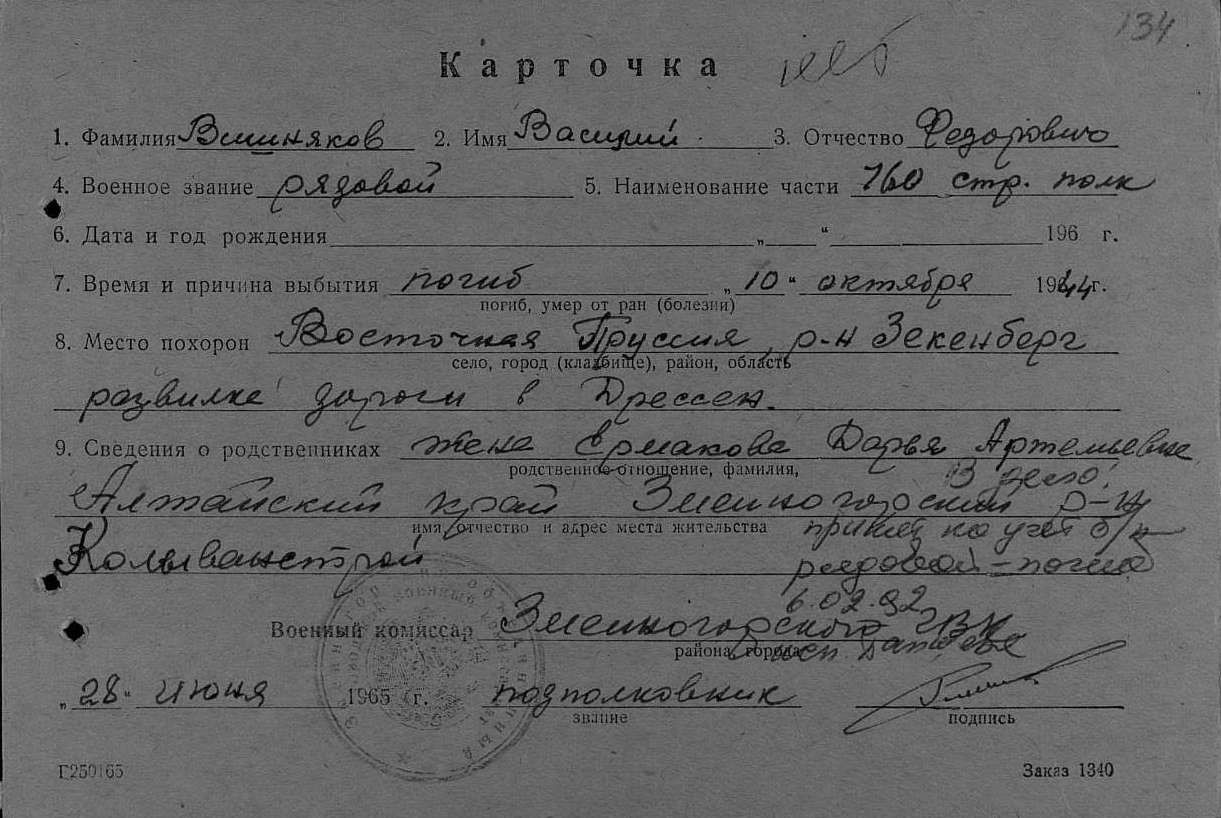 134
Карточка
1. Фамилия Вишняков 2. Имя Василий 3. Отчество Федорович
4. Военное звание рядовой 5. Наименование части 160 стр. полк
6. Дата и год рождения „ “ 196 г.
7. Время и причина выбытия погиб „10“ октября 1944г.
погиб, умер от ран (болезни)
8. Место похорон Восточная Пруссия, р-н Зекенберг
село, город (кладбище), район, область
развилке дороги в Дрессен.
9. Сведения о родственниках жена Ермакова Дарья Артемьевна
родственное отношение, фамилия,
В дело:
Алтайский край Змеиногорский р-н
имя, отчество и адрес места жительства принят на учет б/п
Колыванстрой рядовой – погиб
6.02.92
Военный комиссар Змеиногорского
района, города
„28“ июня 1965 г. подполковник
звание подпись
Г250165 Заказ 1340